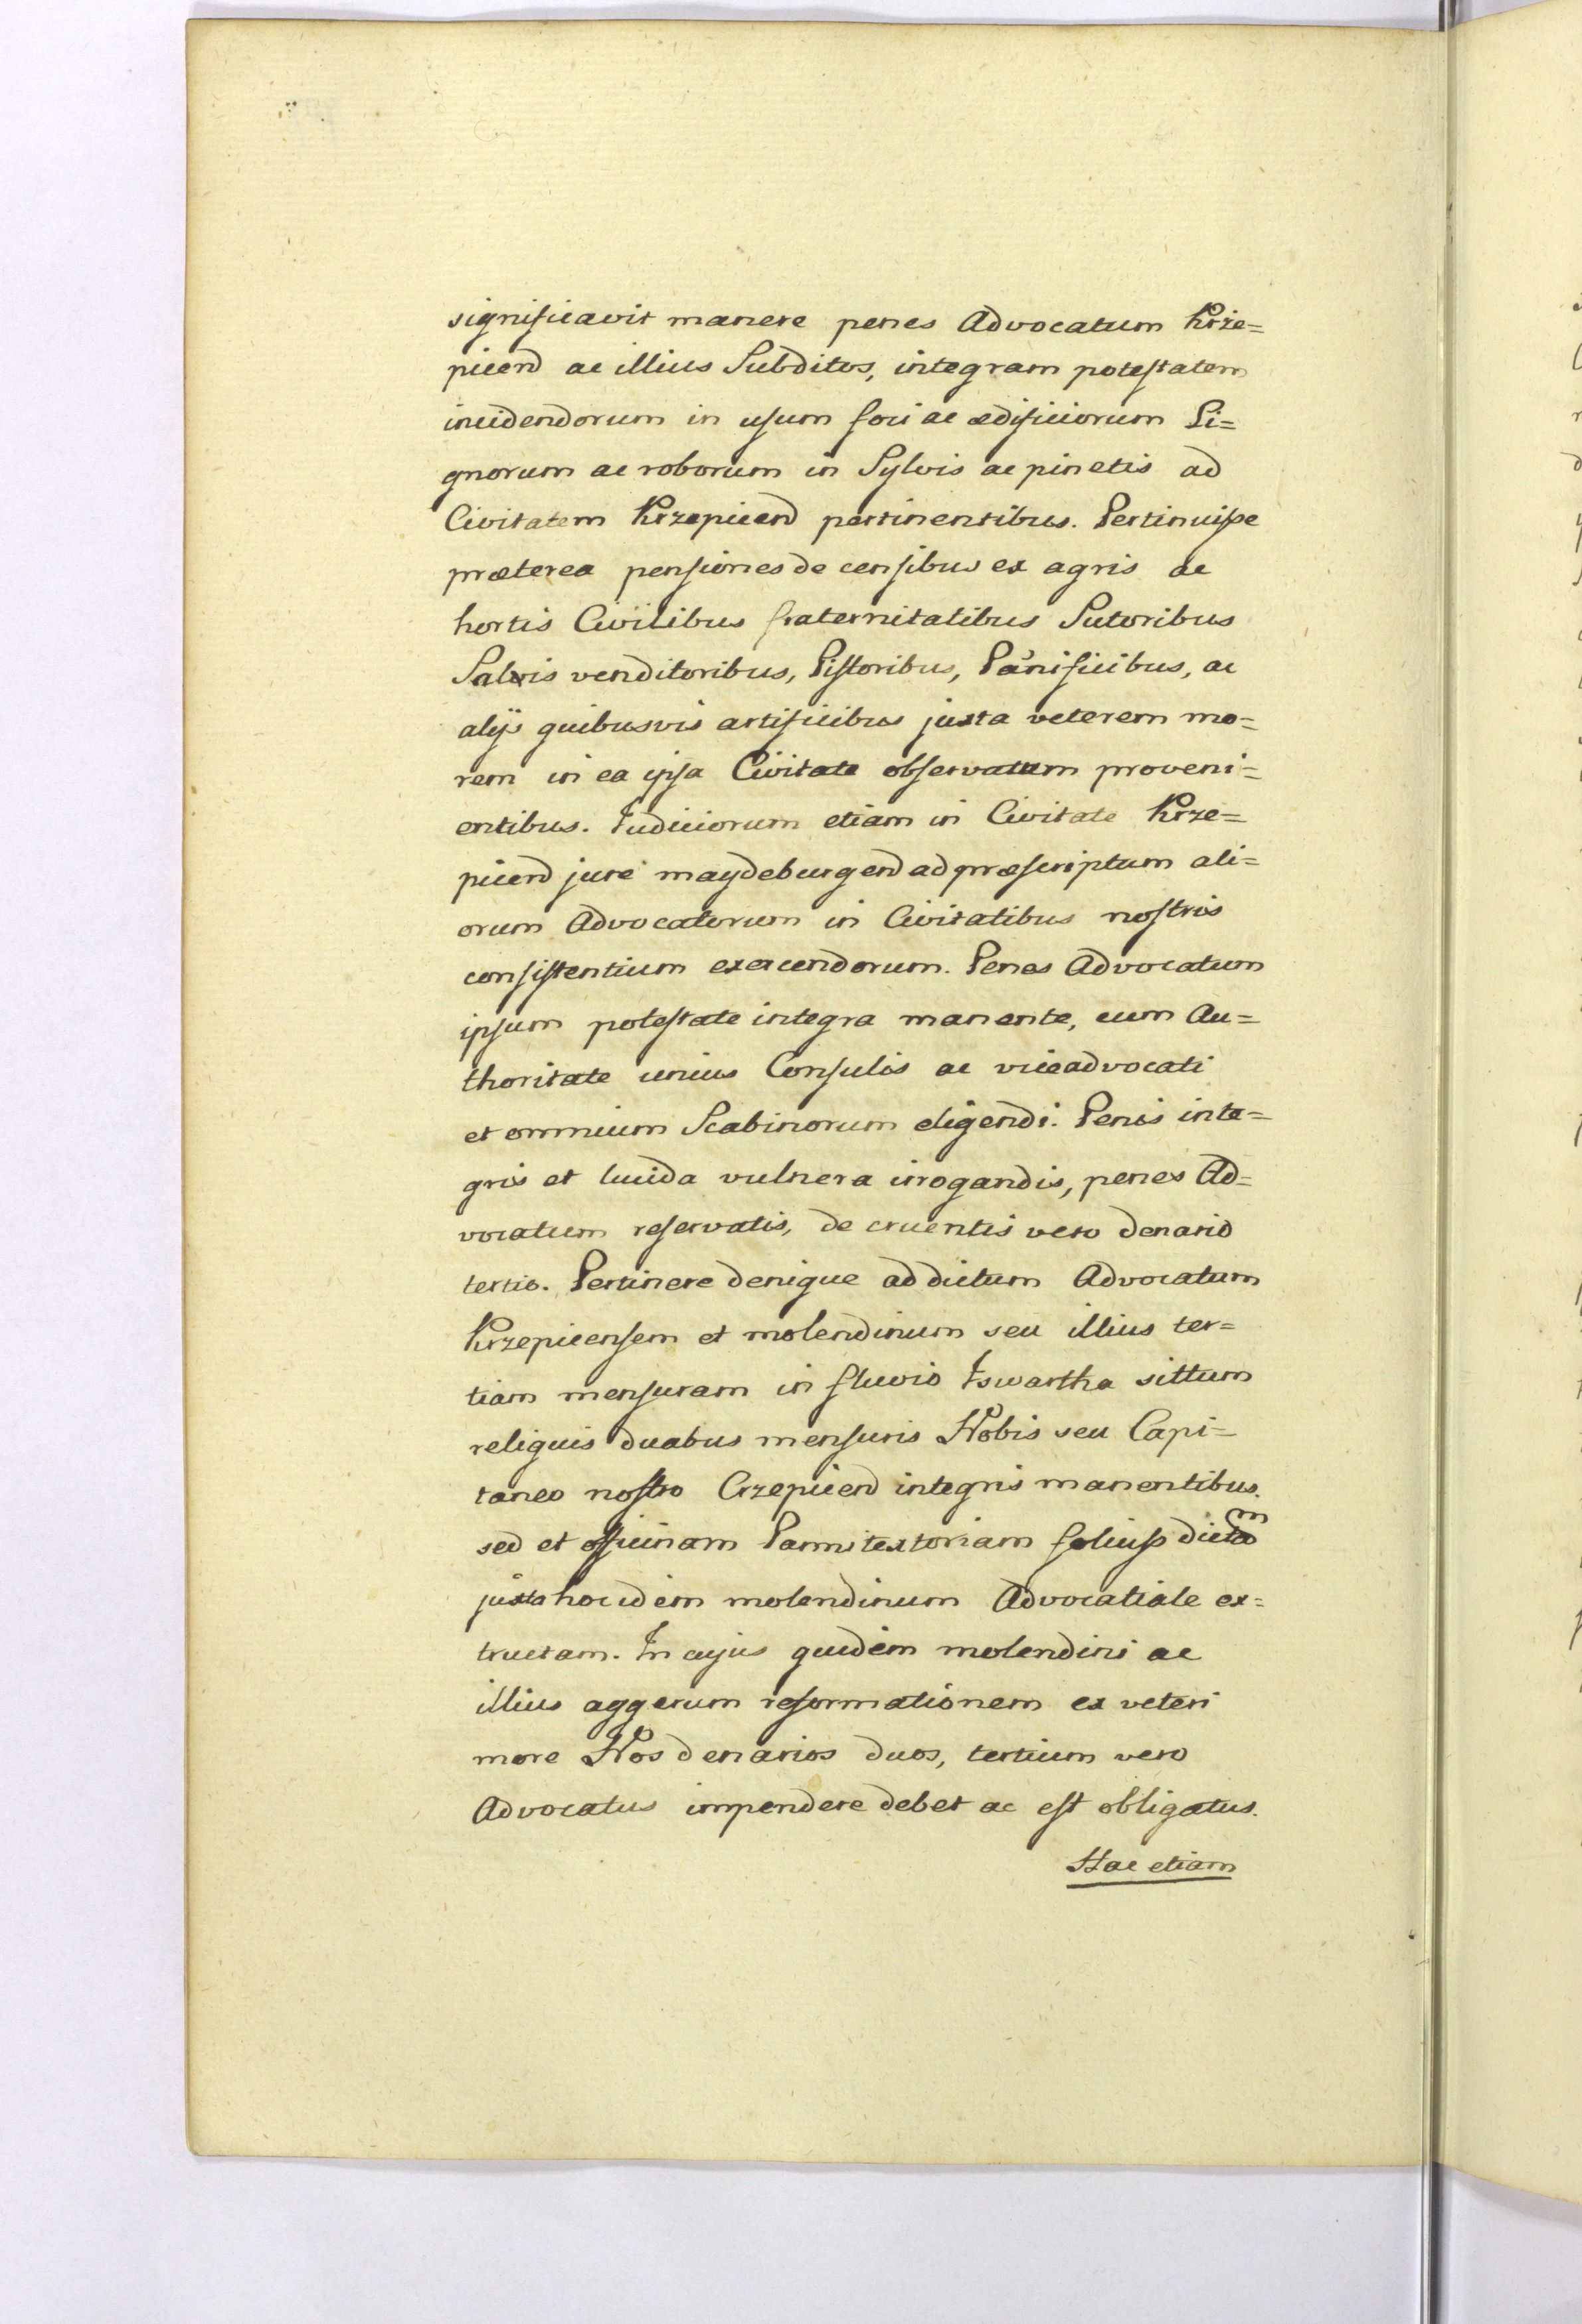 significavit manere penes Advocatum Krze=
picend ac illius Subditos, integram potestatem
incidendorum in usum foci ac ædificiorum Li=
gnorum ac roborum in Sylvis ac pinetis ad
Civitatem Krzepicend pertinentibus. Pertinuisse
præterea pensiones de censibus ex agris ac
hortis Civilibus fraternitatibus Sutoribus
Salis venditoribus, Pistoribus, Panificibus, ac
alijs quibusvis artificibus juxta veterem mo=
rem in ea ipsa Civitate observatum proveni=
entibus. Judiciorum etiam in Civitate Krze=
picend jure maydeburgend ad præscriptum ali=
orum Advocatorum in Civitatibus nostris
consistentium exercendorum. Penes Advocatum
ipsum potestate integra manente, cum Au=
thoritate unius Consulis ac viceadvocati
et omnium Scabinorum eligendi. Penis inte=
gris et lucida vulnera irrogandis, penes Ad=
vocatum reservatis, de cruentis vero denario
tertio. Pertinere denique ad dictum Advocatum
Krzepicensem et molendinum seu illius ter=
tiam mensuram in fluvio Iswartha sittum
reliquis duabus mensuris Nobis seu Capi=
taneo nostro Crzepicend integris manentibus.
sed et officinam Pannitextoriam foliuss dictam
juxta hoc idem molendinum Advocatiale ex=
tructam. In cujus quidem molendini ac
illius aggerum reformationem ex veteri
more Nos denarios duos, tertium vero
Advocatus impendere debet ac est obligatus.
Hac etiam